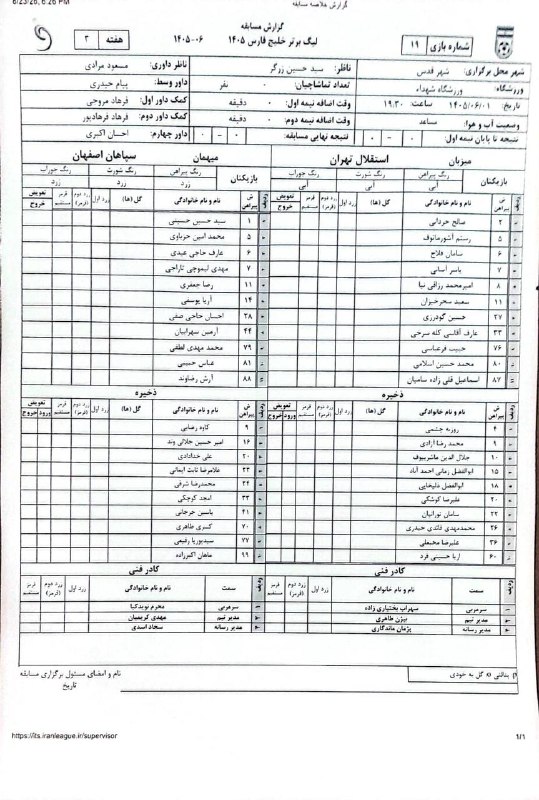 6/23/26, 6:26 PM
گزارش خلاصه مسابقه
گزارش مسابقه
لیگ برتر خلیج فارس ۱۴۰۵
۱۴۰۵-۰۶
هفته ۳
شماره بازی ۱۹
شهر محل برگزاری: شهر قدس
ورزشگاه: ورزشگاه شهداء
تاریخ: ۱۴۰۵/۰۶/۰۱ ساعت: ۱۹:۳۰
وضعیت آب و هوا: مساعد
نتیجه تا پایان نیمه اول: ۰ - ۰
ناظر: سید حسین زرگر
تعداد تماشاچیان: ۰ نفر
وقت اضافه نیمه اول: ۰ دقیقه
وقت اضافه نیمه دوم: ۰ دقیقه
نتیجه نهایی مسابقه: ۰ - ۰
ناظر داوری: مسعود مرادی
داور وسط: پیام حیدری
کمک داور اول: فرهاد مروجی
کمک داور دوم: فرهاد فرهادپور
داور چهارم: احسان اکبری
میزبان استقلال تهران
بازیکنان رنگ پیراهن رنگ شورت رنگ جوراب
آبی آبی آبی
ردیف ش پیراهن نام و نام خانوادگی گل (ها) زرد اول زرد دوم (قرمز) قرمز مستقیم تعویض خروج
۲ صالح حردانی
۵ رستم آشورماتوف
۶ سامان فلاح
۷ یاسر آسانی
۸ امیرمحمد رزاقی نیا
۱۱ سعید سحرخیزان
۲۷ حسین گودرزی
۳۳ عارف آقاسی کله سرخی
۷۶ حبیب فرعباسی
۸۰ محمد حسین اسلامی
۸۷ اسماعیل قلی زاده سامیان
ذخیره
ردیف ش پیراهن نام و نام خانوادگی گل (ها) زرد اول زرد دوم (قرمز) قرمز مستقیم تعویض ورود خروج
۴ روزبه چشمی
۹ محمد رضا آزادی
۱۰ جلال الدین ماشاریپوف
۱۵ ابوالفضل زمانی احمد آباد
۱۸ ابوالفضل
۲۰ علیرضا کوشکی
۲۲ سامان تورانیان
۲۶ محمدمهدی قائدی حیدری
۳۶ علیرضا
۶۰ آریا حسینی فرد
کادر فنی
ردیف سمت نام و نام خانوادگی زرد اول زرد دوم (قرمز) قرمز مستقیم
۱ سرمربی سهراب بختیاری زاده
۲ مدیر تیم بیژن طاهری
۳ مدیر رسانه پژمان ماندگاری
میهمان سپاهان اصفهان
بازیکنان رنگ پیراهن رنگ شورت رنگ جوراب
زرد زرد زرد
ردیف ش پیراهن نام و نام خانوادگی گل (ها) زرد اول زرد دوم (قرمز) قرمز مستقیم تعویض خروج
۱ سید حسین حسینی
۵ محمد امین حزباوی
۶ عارف حاجی عیدی
۷ مهدی لیموچی
۱۱ رضا جعفری
۱۴ آریا یوسفی
۲۸ احسان حاجی صفی
۴۴ آرمین سهرابیان
۷۹ محمد مهدی لطفی
۸۱ عباس حبیبی
۸۸ آرش رضاوند
ذخیره
ردیف ش پیراهن نام و نام خانوادگی گل (ها) زرد اول زرد دوم (قرمز) قرمز مستقیم تعویض ورود خروج
۹ کاوه رضایی
۱۶ امیر حسین جلالی وند
۲۰ علی خدادادی
۲۳ غلامرضا ثابت ایمانی
۲۴ محمدرضا شرفی
۳۳ امجد کوچکی
۴۱ یاسین جرجانی
۷۰ کسری طاهری
۷۷ سیدپوریا رفیعی
۹۹ ماهان اکبرزاده
کادر فنی
ردیف سمت نام و نام خانوادگی زرد اول زرد دوم (قرمز) قرمز مستقیم
۱ سرمربی محرم نویدکیا
۲ مدیر تیم مهدی کریمیان
۳ مدیر رسانه سجاد اسدی
P پنالتی O گل به خودی
نام و امضای مسئول برگزاری مسابقه
تاریخ
https://its.iranleague.ir/supervisor
1/1